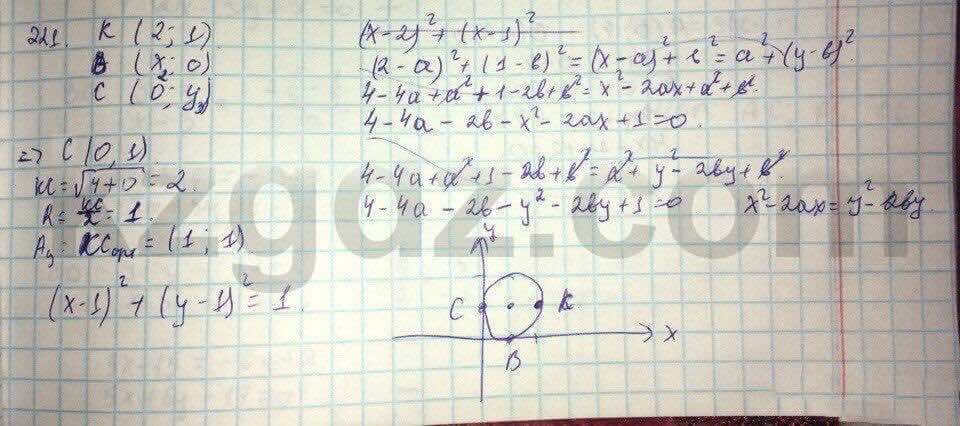 221. K (2; 1)
B (x; 0)
C (0; y)
=> C (0, 1)
KC = √4+0 = 2.
R = KC/2 = 1.
= (1; 1)
(x-1)² + (y-1)² = 1.
(x-2)² + (x-1)²
(2-a)² + (1-b)² = (x-a)² + b² = a² + (y-b)²
4-4a+a²+1-2b+b² = x²-2ax+a²+b².
4-4a-2b-x²-2ax+1=0.
4-4a+a²+1-2b+b² = a²+y²-2by+b²
4-4a-2b-y²-2by+1=0 x²-2ax=y²-2by.
y
C K
B x
zgdz.com